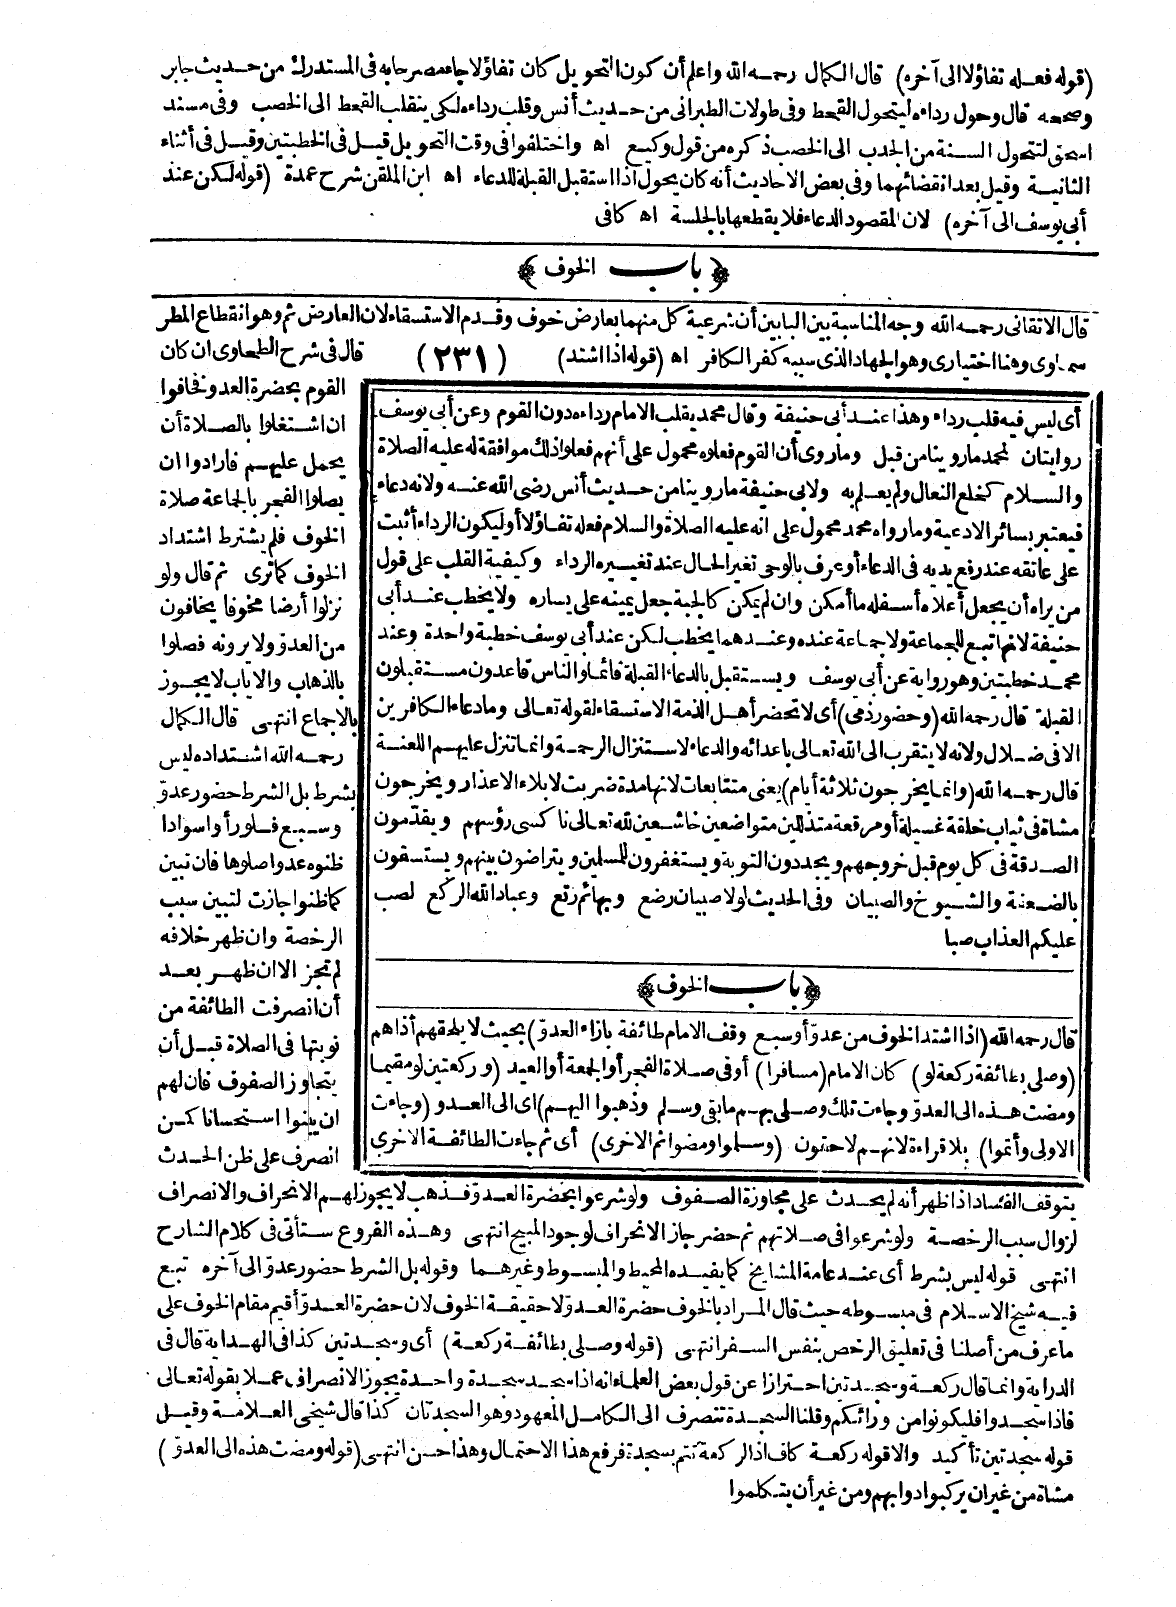 (قوله فعله تفاؤلا الى آخره) قال الكمال رحمه الله واعلم أن كون التحويل كان تفاؤلا جاء مصرحا به فى المستدرك من حديث جابر
وصححه قال وحول رداءه ليتحول القحط وفى طولات الطبرانى من حديث أنس وقلب رداءه لكى ينقلب القحط الى الخصب وفى مسند
اسحق لتتحول السنة من الجدب الى الخصب ذكره من قول وكيع اه واختلفوا فى وقت التحويل قيل فى الخطبتين وقيل فى أثناء
الثانية وقيل بعد انقضائهما وفى بعض الاحاديث أنه كان يحول اذا استقبل القبلة للدعاء اه ابن الملقن شرح عمدة (قوله لكن عند
أبى يوسف الى آخره) لان المقصود الدعاء فلا يقطعها بالجلسة اه كافى
﴿ باب الخوف ﴾
قال الاتقانى رحمه الله وجه المناسبة بين البابين أن شرعية كل منهما بعارض خوف وقدم الاستسقاء لان العارض ثم وهو انقطاع المطر
سماوى وهنا اختيارى وهو الجهاد الذى سببه كفر الكافر اه (قوله اذا اشتد) (٢٣١) قال فى شرح الطحاوى ان كان
القوم بحضرة العدو فخافوا
ان اشتغلوا بالصلاة أن
يحمل عليهم فارادوا ان
يصلوا الفجر بالجماعة صلاة
الخوف فلم يشترط اشتداد
الخوف كما ترى ثم قال ولو
نزلوا أرضا مخوفا يخافون
من العدو ولا يرونه فصلوا
بالذهاب والاياب لا يجوز
بالاجماع انتهى قال الكمال
رحمه الله اشتداده ليس
بشرط بل الشرط حضور عدو
وسبع فلو رأوا سوادا
ظنوه عدوا صلوها فان تبين
كما ظنوا جازت لتبين سبب
الرخصة وان ظهر خلافه
لم تجز الا ان ظهر بعد
أن انصرفت الطائفة من
نوبتها فى الصلاة قبل أن
يتجاوز الصفوف فان لهم
ان يبنوا استحسانا كمن
انصرف على ظن الحدث
أى ليس فيه قلب رداء وهذا عند أبى حنيفة وقال محمد يقلب الامام رداءه دون القوم وعن أبى يوسف
روايتان لمحمد ما روينا من قبل وما روى أن القوم فعلوه محمول على أنهم فعلوا ذلك موافقة له عليه الصلاة
والسلام كخلع النعال ولم يعلم به ولابى حنيفة ما روينا من حديث أنس رضى الله عنه ولانه دعاء
فيعتبر بسائر الادعية وما رواه محمد محمول على انه عليه الصلاة والسلام فعله تفاؤلا أو ليكون الرداء أثبت
على عاتقه عند رفع يديه فى الدعاء أو عرف بالوحى تغير الحال عند تغييره الرداء وكيفية القلب على قول
من يراه أن يجعل أعلاه أسفله ما أمكن وان لم يمكن كالجبة جعل يمينه على يساره ولا يخطب عند أبى
حنيفة لانها تبع للجماعة ولا جماعة عنده وعندهما يخطب لكن عند أبى يوسف خطبة واحدة وعند
محمد خطبتين وهو رواية عن أبى يوسف ويستقبل بالدعاء القبلة قائما والناس قاعدون مستقبلون
القبلة قال رحمه الله (وحضور ذمى) أى لا تحضر أهل الذمة الاستسقاء لقوله تعالى وما دعاء الكافرين
الا فى ضلال ولانه لا يتقرب الى الله تعالى باعدائه والدعاء لاستنزال الرحمة وانما تنزل عليهم اللعنة
قال رحمه الله (وانما يخرجون ثلاثة أيام) يعنى متتابعات لانها مدة ضربت لابلاء الاعذار ويخرجون
مشاة فى ثياب خلقة غسيلة أو مرقعة متذللين متواضعين خاشعين لله تعالى ناكسى رؤسهم ويقدمون
الصدقة فى كل يوم قبل خروجهم ويجددون التوبة ويستغفرون للمسلمين ويتراضون بينهم ويستسقون
بالضعفة والشيوخ والصبيان وفى الحديث لولا صبيان رضع وبهائم رتع وعباد الله الركع لصب
عليكم العذاب صبا
﴿ باب الخوف ﴾
قال رحمه الله (اذا اشتد الخوف من عدو أو سبع وقف الامام طائفة بازاء العدو) بحيث لا يلحقهم أذاهم
(وصلى بطائفة ركعة لو) كان الامام (مسافرا) أو فى صلاة الفجر أو الجمعة أو العيد (وركعتين لو مقيما
ومضت هذه الى العدو وجاءت تلك وصلى بهم ما بقى وسلم وذهبوا اليهم) اى الى العدو (وجاءت
الاولى وأتموا) بلا قراءة لانهم لاحقون (وسلموا ومضوا ثم الاخرى) أى ثم جاءت الطائفة الاخرى
يتوقف الفساد اذا ظهر أنه لم يحدث على مجاوزة الصفوف ولو شرعوا بحضرة العدو فذهب لا يجوز لهم الانحراف والانصراف
لزوال سبب الرخصة ولو شرعوا فى صلاتهم ثم حضر جاز الانحراف لوجود المبيح انتهى وهذه الفروع ستأتى فى كلام الشارح
انتهى قوله ليس بشرط أى عند عامة المشايخ كما يفيده المحيط والمبسوط وغيرهما وقوله بل الشرط حضور عدو الى آخره تبع
فيه شيخ الاسلام فى مبسوطه حيث قال المراد بالخوف حضرة العدو لا حقيقة الخوف لان حضرة العدو أقيم مقام الخوف على
ما عرف من أصلنا فى تعليق الرخص بنفس السفر انتهى (قوله وصلى بطائفة ركعة) أى وسجدتين كذا فى الهداية قال فى
الدراية وانما قال ركعة وسجدتين احترازا عن قول بعض العلماء انه اذا سجد سجدة واحدة يجوز الانصراف عملا بقوله تعالى
فاذا سجدوا فليكونوا من ورائكم وقلنا السجدة تنصرف الى الكامل المعهود وهو السجدتان كذا قال شيخى العلامة وقيل
قوله سجدتين تأكيد والا قوله ركعة كاف اذ الركعة تتم بسجدة فرفع هذا الاحتمال وهذا حسن انتهى (قوله ومضت هذه الى العدو)
مشاة من غير ان يركبوا دوابهم ومن غير أن يتكلموا